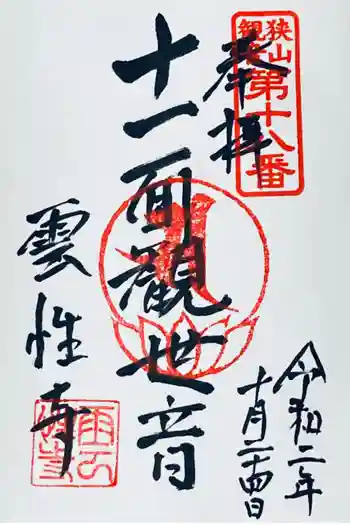 狭山
観音
第十八番
奉拝
十一面觀世音
雲性寺
令和二年
十月二十四日